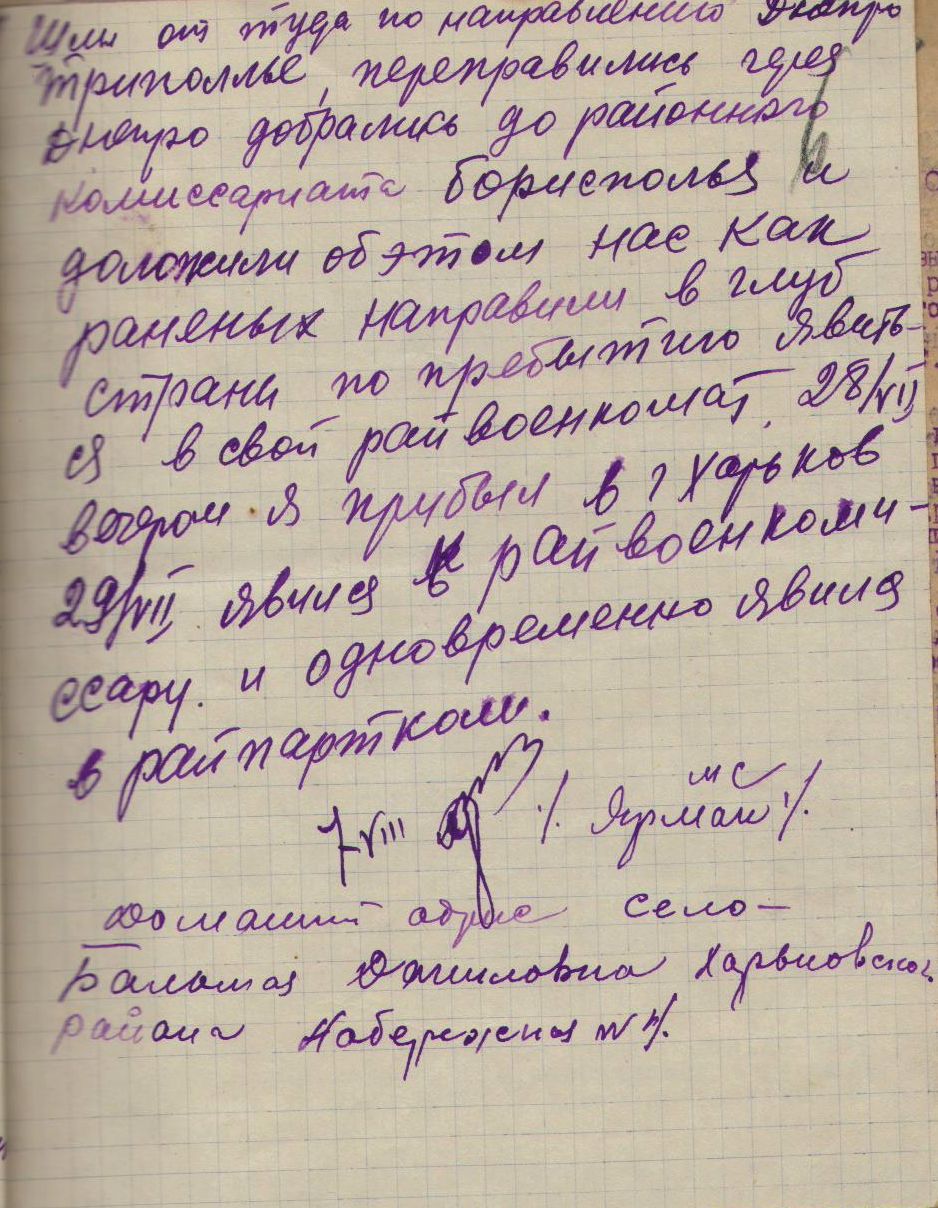 Шли от туда по направлению Днепро
Триполлье, переправились через
Днепро добрались до районного
комиссариата Борисполья и
доложили об этом нас как
раненых направили в глуб
страны по пребытию явить-
ся в свой райвоенкомат. 28/VII
вечером я прибыл в г Харьков
29/VII явился к райвоенкоми-
ссару. и одновременно явился
в райпартком.
7 VIII
Домашний адрес село-
Большая Даниловка Харьковског.
района Набережная N